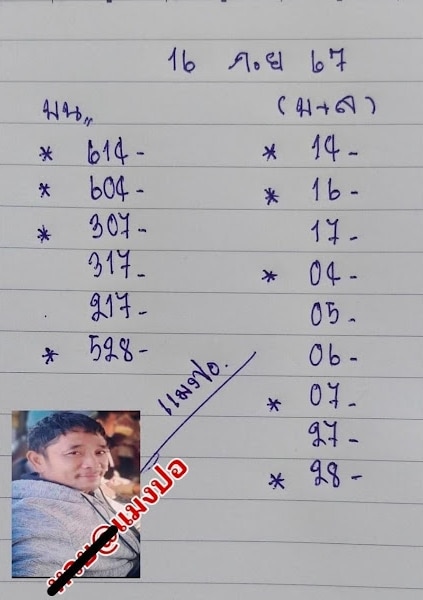 16 ก.ย 67
บน,,
* 614-
* 604-
* 307-
317-
217-
* 528-
(บ+ล)
* 14-
* 16-
17-
* 04-
05-
06-
* 07-
27-
* 28-
แมงปอ.
@แมงปอ